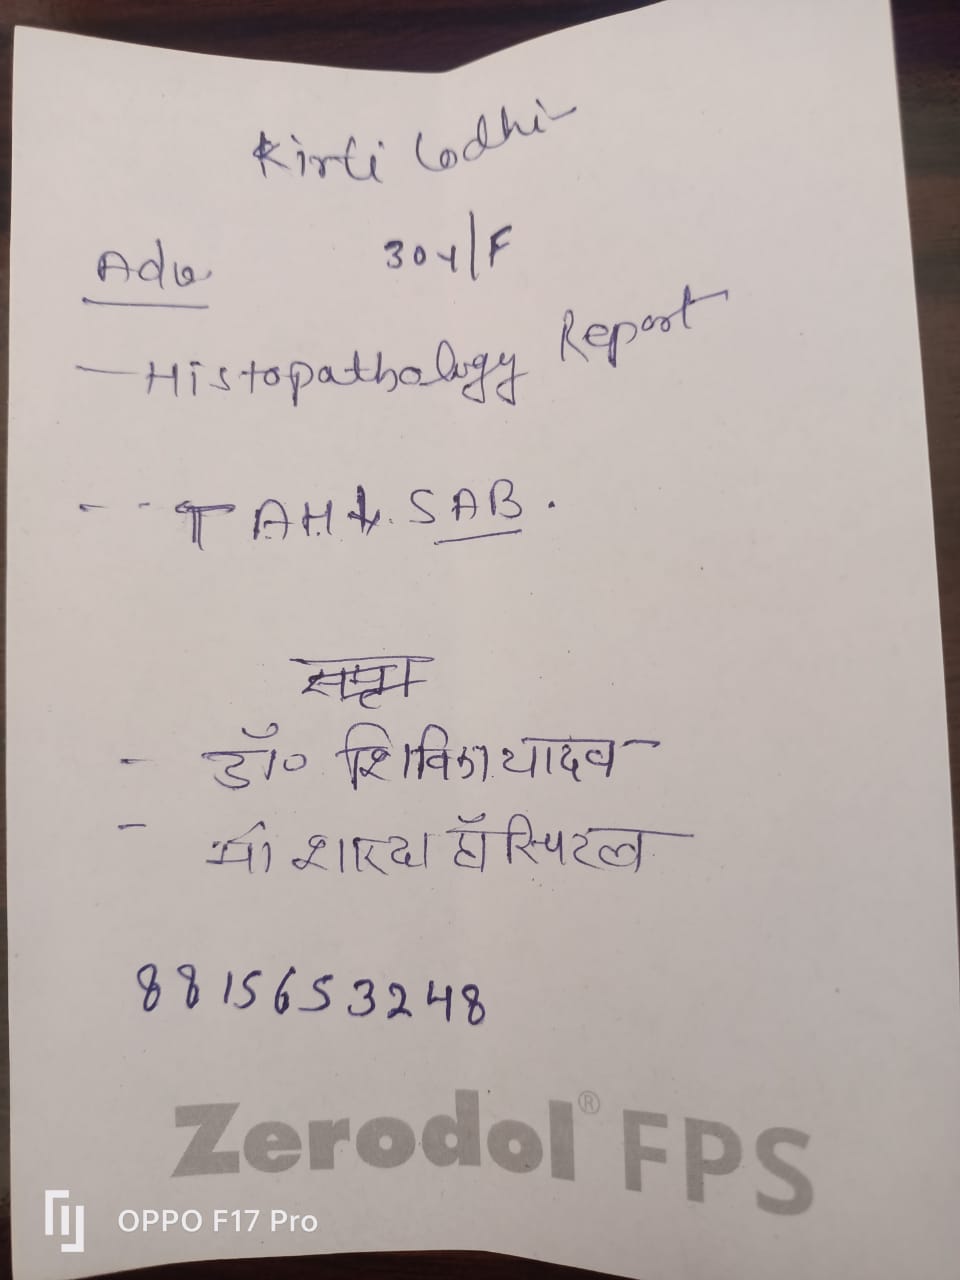 Kirti Lodhi
30y/F
Adv
- Histopathology Report
- - TAH & SAB.
- डॉ० शिविका यादव
- माँ शारदा हॉस्पिटल
8815653248
Zerodol® FPS
OPPO F17 Pro